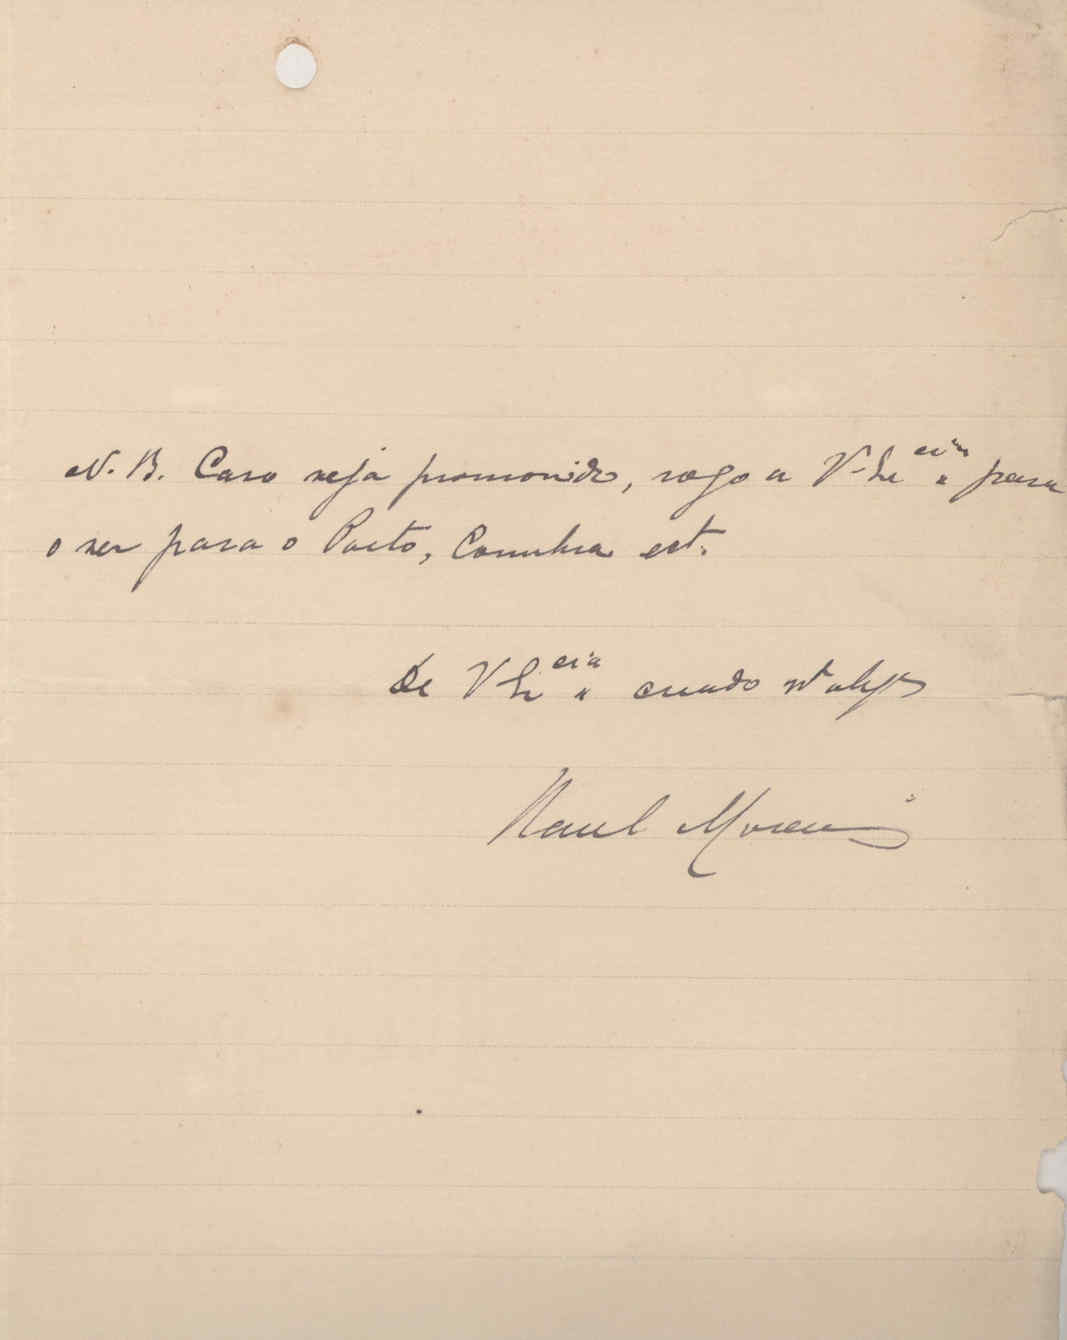 N. B. Caso seja promovido, rogo a V. Ex.cia para
o ser para o Porto, Coimbra ect.
De V Ex.cia criado
Raul